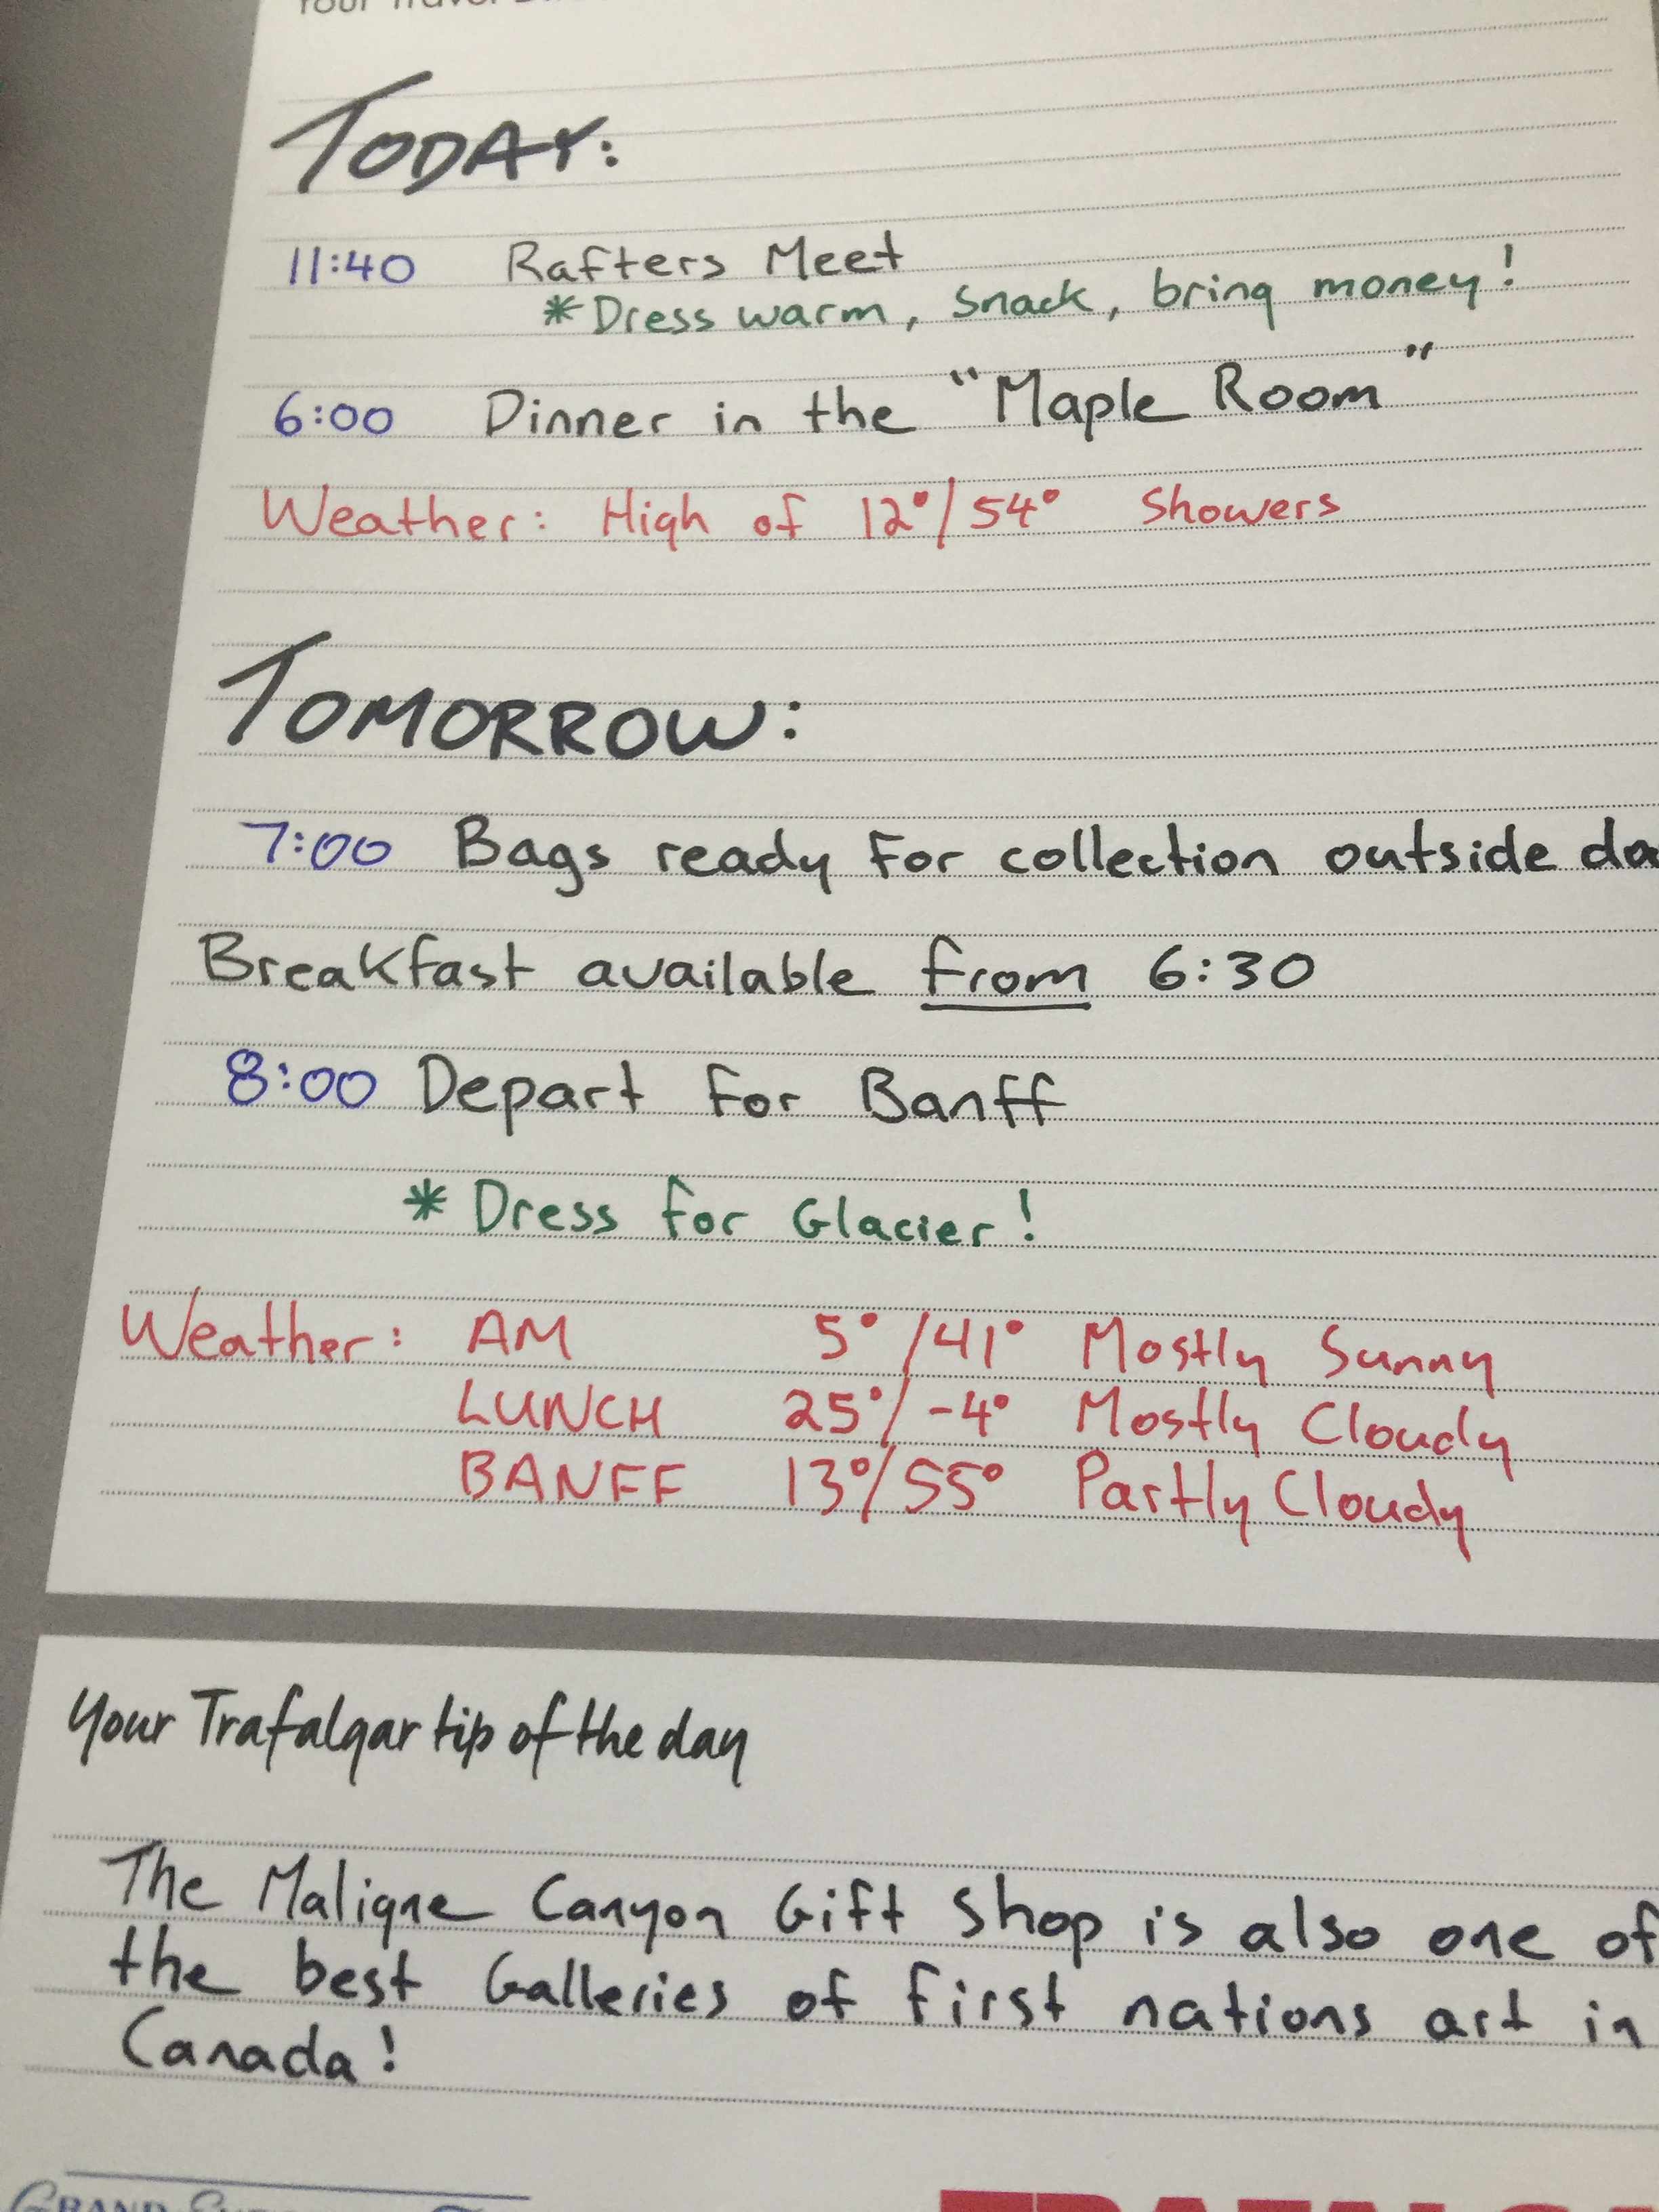 Your Travel
TODAY:
11:40 Rafters Meet
*Dress warm, snack, bring money!
6:00 Dinner in the "Maple Room"
Weather: High of 12°/54° Showers
TOMORROW:
7:00 Bags ready for collection outside
Breakfast available from 6:30
8:00 Depart for Banff
* Dress for Glacier!
Weather: AM 5°/41° Mostly Sunny
LUNCH 25°/-4° Mostly Cloudy
BANFF 13°/55° Partly Cloudy
your Trafalgar tip of the day
The Maligne Canyon Gift Shop is also one of
the best Galleries of first nations art in
Canada!
GRAND